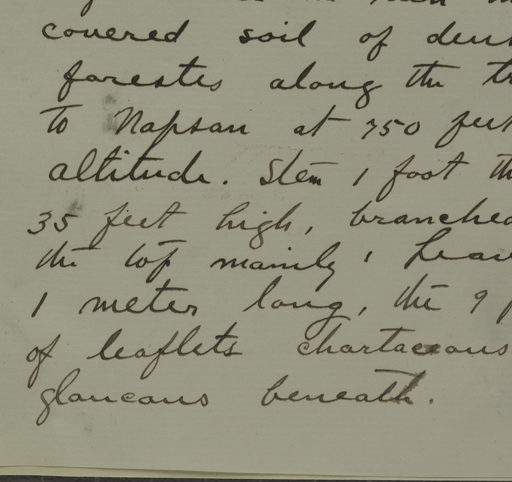 covered soil of dens
forests along the tr
to Napsan at 750 feet
altitude. Stem 1 foot th
35 feet high, branched
the top mainly; Leav
1 meter long, the 9 p
of leaflets chartaceous
glaucous beneath.